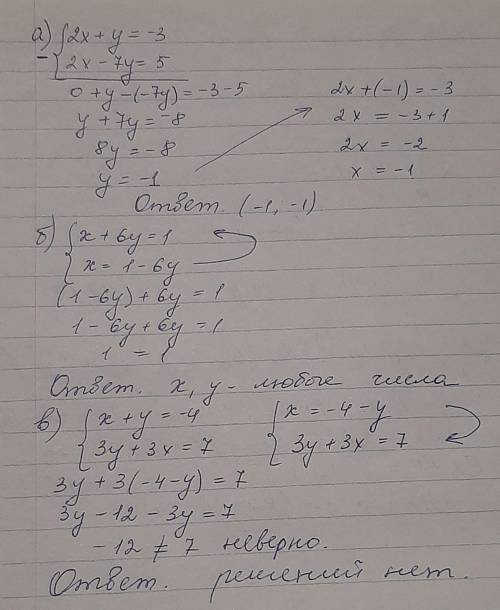 а) {2x + y = -3
- {2x - 7y = 5
0 + y - (-7y) = -3 - 5
y + 7y = -8
8y = -8
y = -1
2x + (-1) = -3
2x = -3 + 1
2x = -2
x = -1
Ответ (-1, -1)
б) {x + 6y = 1
{x = 1 - 6y
(1 - 6y) + 6y = 1
1 - 6y + 6y = 1
1 = 1
Ответ. x, y - любые числа
в) {x + y = -4
{3y + 3x = 7
{x = -4 - y
{3y + 3x = 7
3y + 3(-4 - y) = 7
3y - 12 - 3y = 7
-12 ≠ 7 неверно.
Ответ. решений нет.